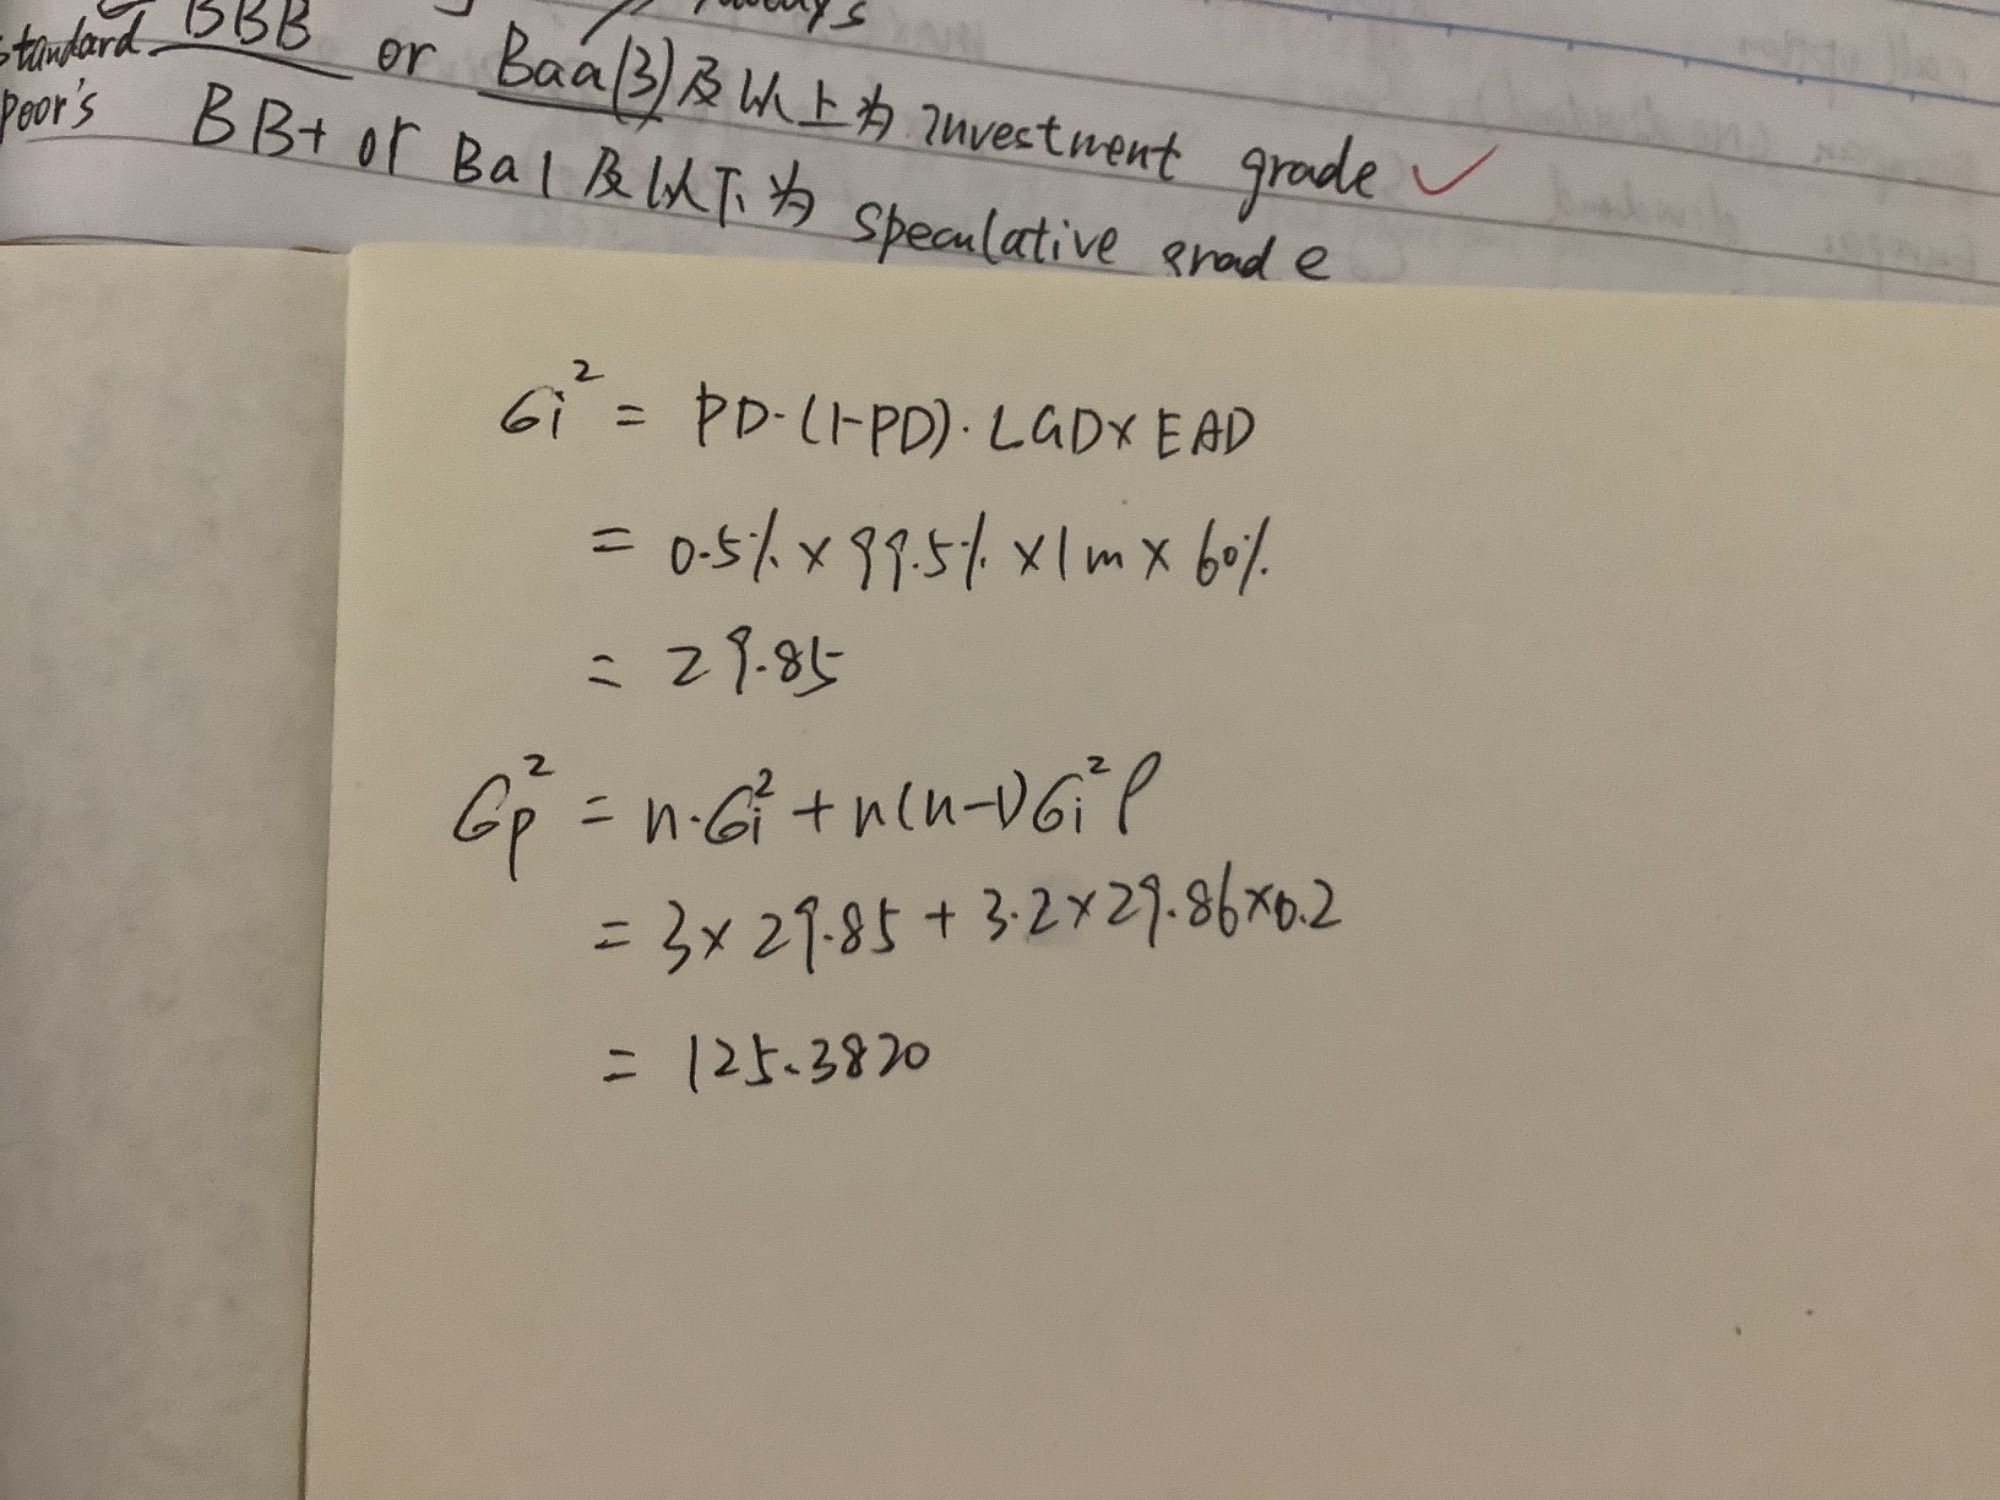 BBB or Baa(3)及以上为 investment grade ✓
standard
poor's
BB+ or Ba1及以下为 speculative grade
σi² = PD·(1-PD)·LGD×EAD
= 0.5% × 99.5% × 1m × 60%
= 29.85
σp² = n·σi² + n(n-1)σi²ρ
= 3×29.85 + 3·2×29.86×0.2
= 125.3820